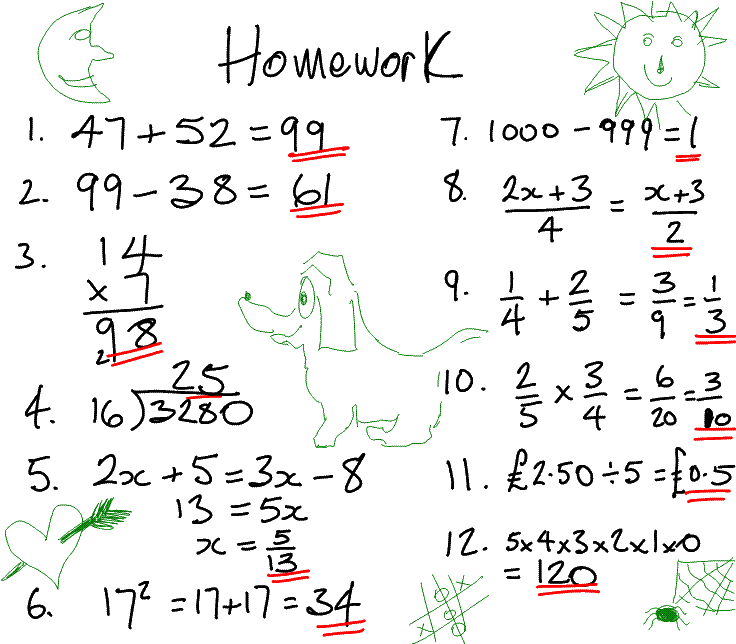 Homework
1. 47 + 52 = 99
2. 99 - 38 = 61
3. 14
x 7
98
2
25
4. 16)3280
5. 2x + 5 = 3x - 8
13 = 5x
x = 5/13
6. 17² = 17+17 = 34
7. 1000 - 999 = 1
8. (2x + 3)/4 = (x+3)/2
9. 1/4 + 2/5 = 3/9 = 1/3
10. 2/5 x 3/4 = 6/20 = 3/10
11. £2.50 ÷ 5 = £0.5
12. 5x4x3x2x1x0
= 120